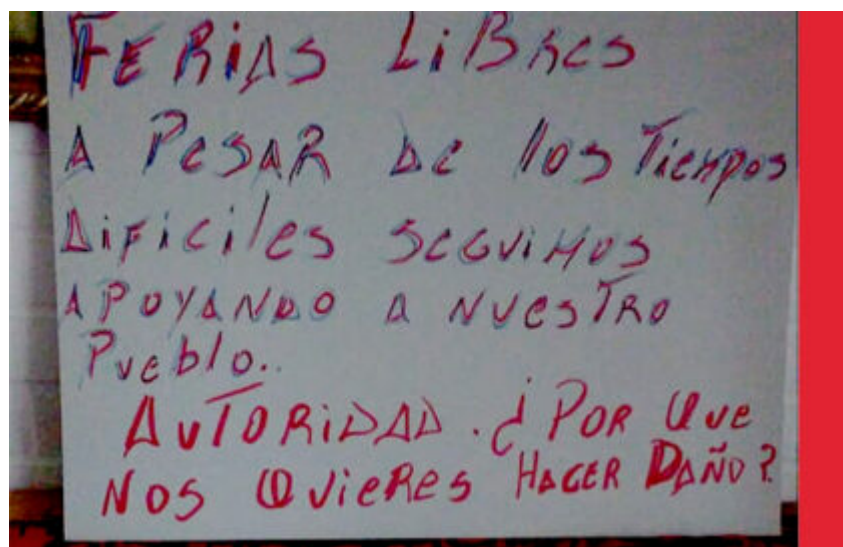 FERIAS LiBRes
A PeSAR De los Tiempos
DiFiciles SeGUiMOS
APOYANDO A NUesTRO
Pueblo..
AUTORiDAD. ¿POR QUe
NOS QUieRes HACER DAÑO?